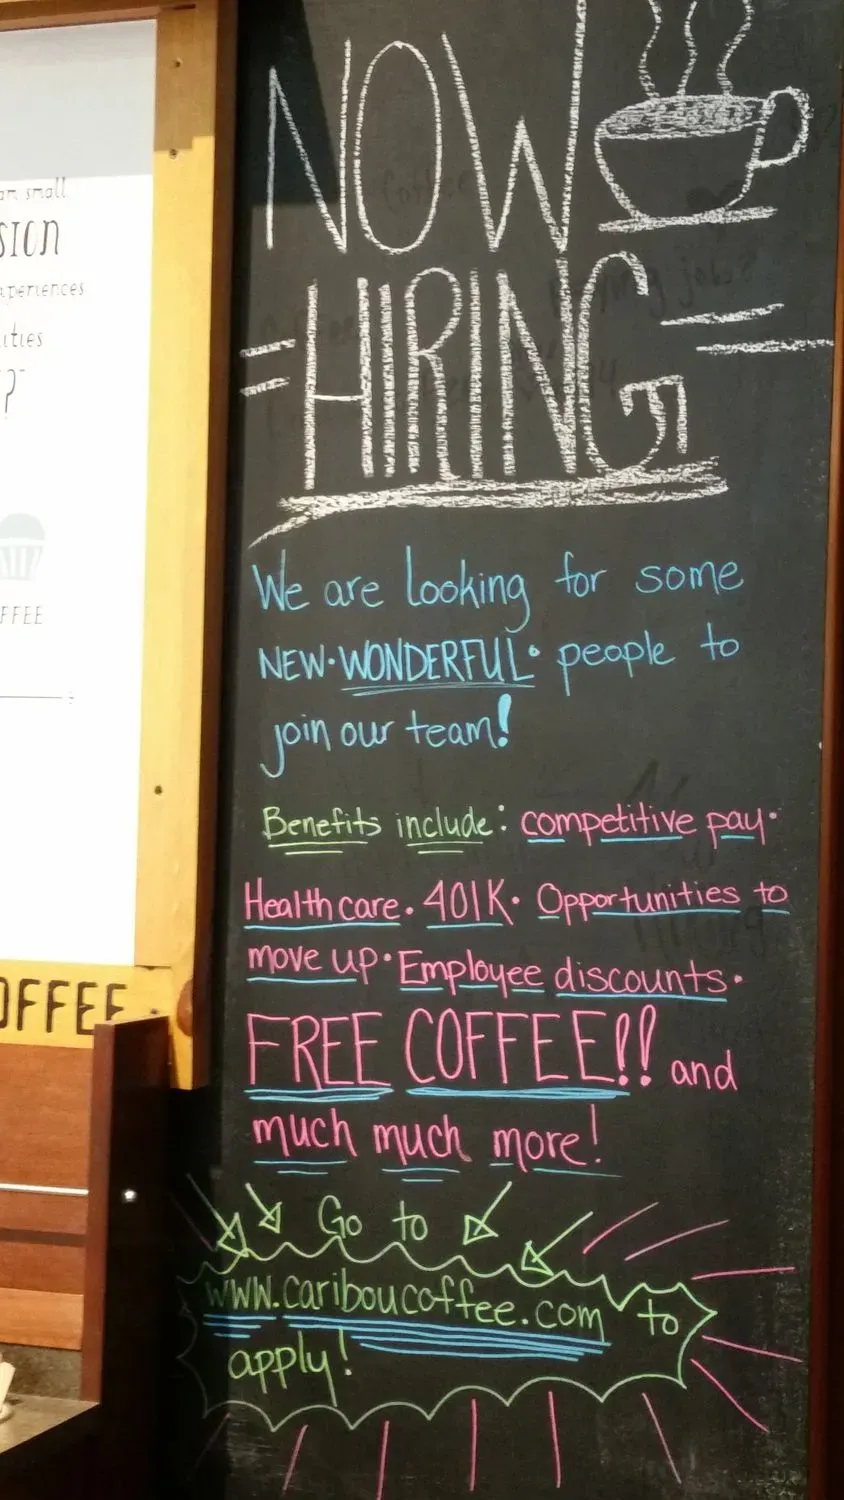 NOW
HIRING
We are looking for some
NEW·WONDERFUL· people to
join our team!
Benefits include: competitive pay·
Healthcare. 401K· Opportunities to
move up·Employee discounts·
FREE COFFEE!! and
much much more!
Go to
www.cariboucoffee.com to
apply!
small
periences
?
OFFEE